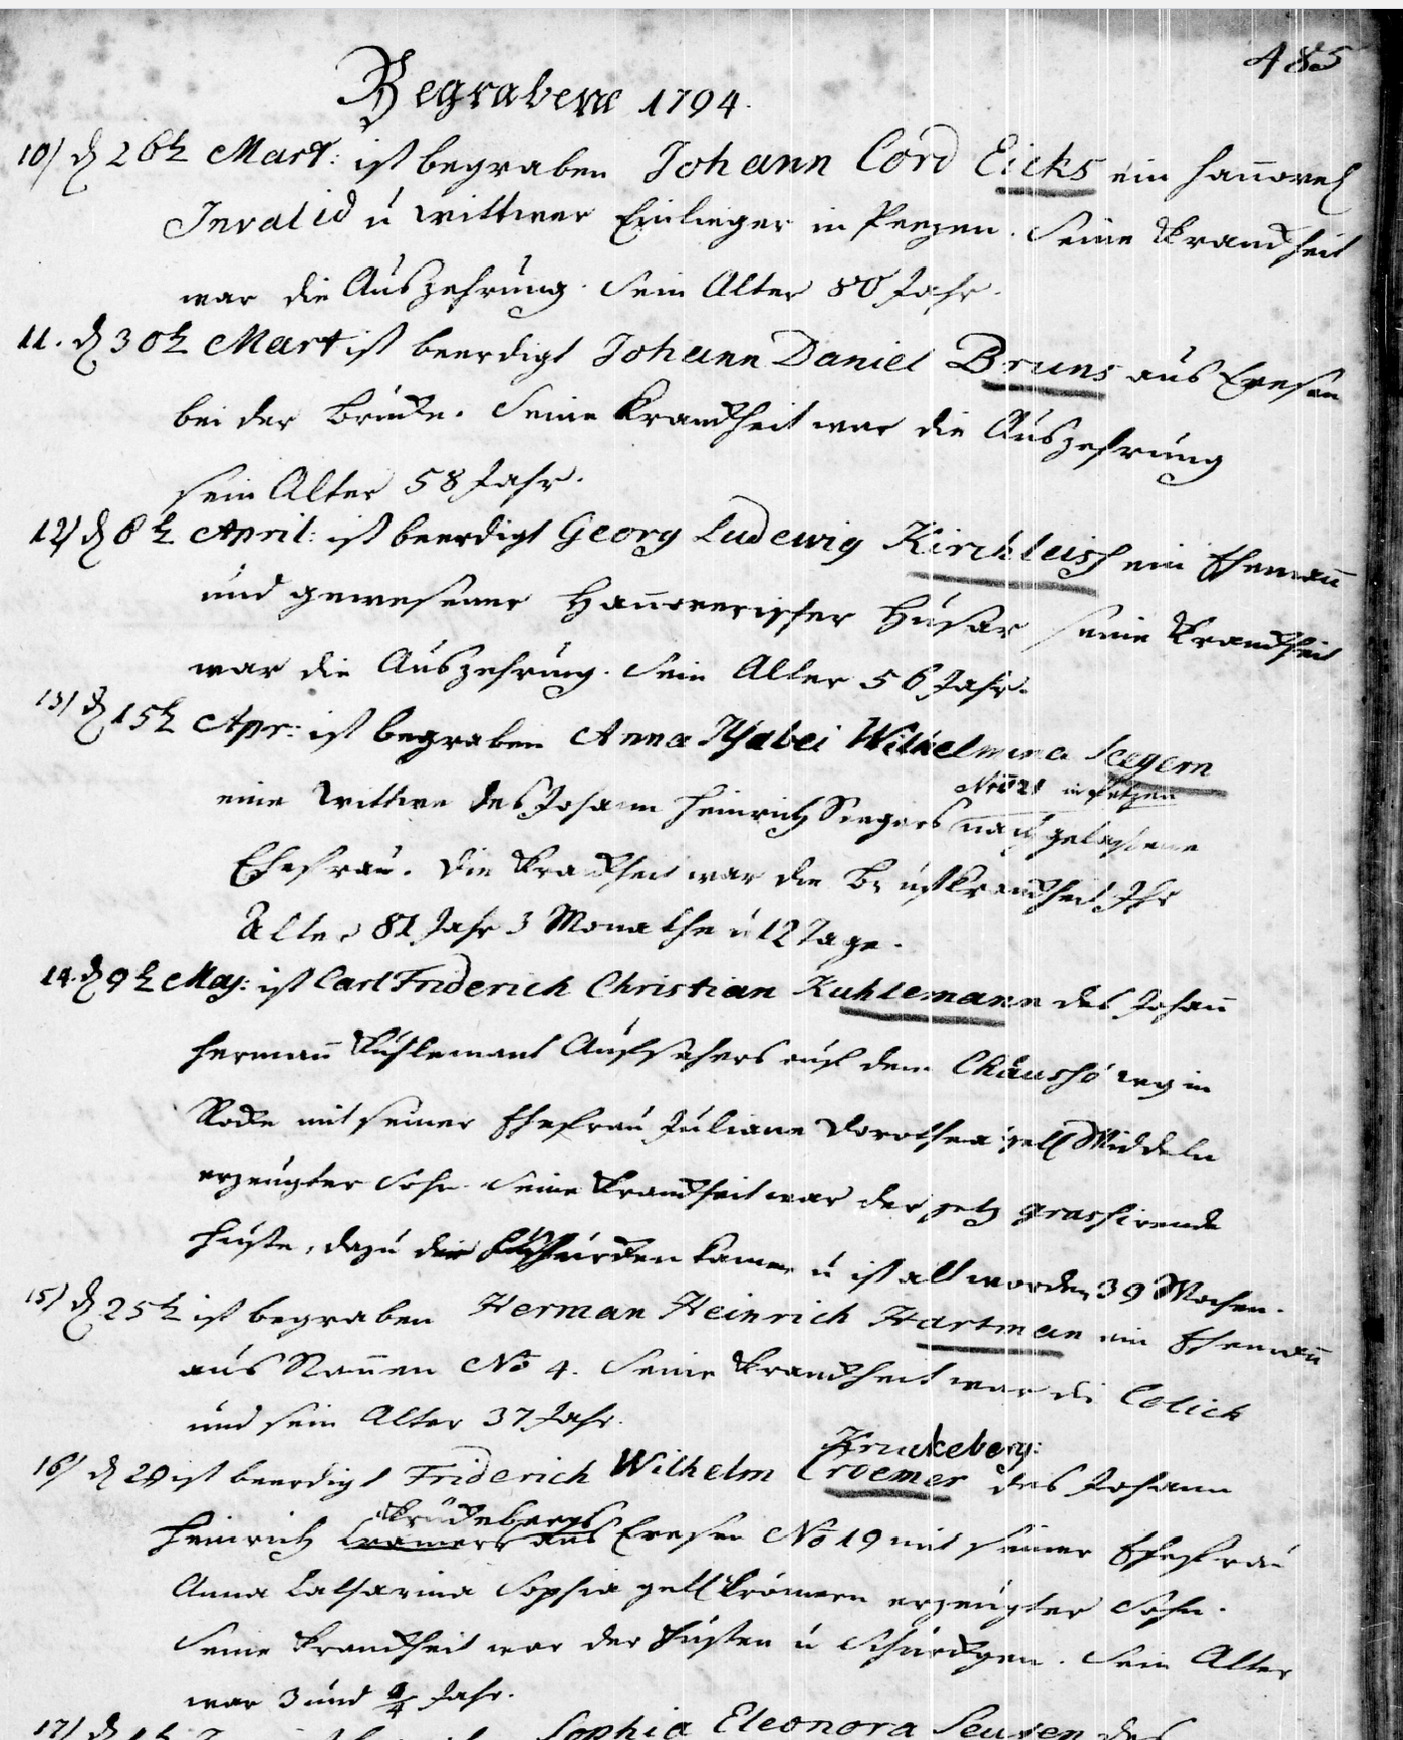 485
Begrabene 1794.
10) d 26t Mart: ist begraben Johann Cord Eicks ein hannöverl
Invalid u Wittwer Einlieger in Peezen. Seine Krankheit
war die Auszehrung. Sein Alter 80 Jahr.
11. d 30t Mart ist beerdigt Johann Daniel Bruns aus Evesen
bei der Brücke. Seine Krankheit war die Auszehrung
sein Alter 58 Jahr.
12) d 8t April: ist beerdigt Georg Ludewig Kirchleisch ein Ehemann
und gewesener Hannoverischer Husar seine Krankheit
war die Auszehrung. Sein Alter 56 Jahr.
13) d 15t Apr: ist begraben Anna Ilsabei Wilhelmina Seegern
in Petzen
eine Wittwe des Johann Heinrich Seegers nachgelassene
Ehefrau. Die Krankheit war die Brustkrankheit Ihr
Alter 81 Jahr 3 Monathe u 12 Tage.
14. d 9t May: ist Carl Friderich Christian Kuhlemann des Johann
Hermann Kuhlemans Aufsehers auf dem Chausse weg in
Röke mit seiner Ehefrau Juliane Dorothea geb Middeln
erzeugter Sohn. Seine Krankheit war der jetz grassirende
Huste, dazu die kamen u ist alt worden 39 Wochen.
15) d 25t ist begraben Herman Heinrich Hartman ein Ehemann
aus Nammen No 4. Seine Krankheit war die Colick
und sein Alter 37 Jahr.
Kruckeberg:
16) d 29 ist beerdigt Friderich Wilhelm Croemer des Johann
Krückebergs
Heinrich Cramers aus Evesen No 19 mit seiner Ehefrau
Anna Catharina Sophia geb Krömern erzeugter Sohn.
Seine Krankheit war der Husten u Schürckgen. Sein Alter
war 3 und Jahr.
17) d Sophia Eleonora des